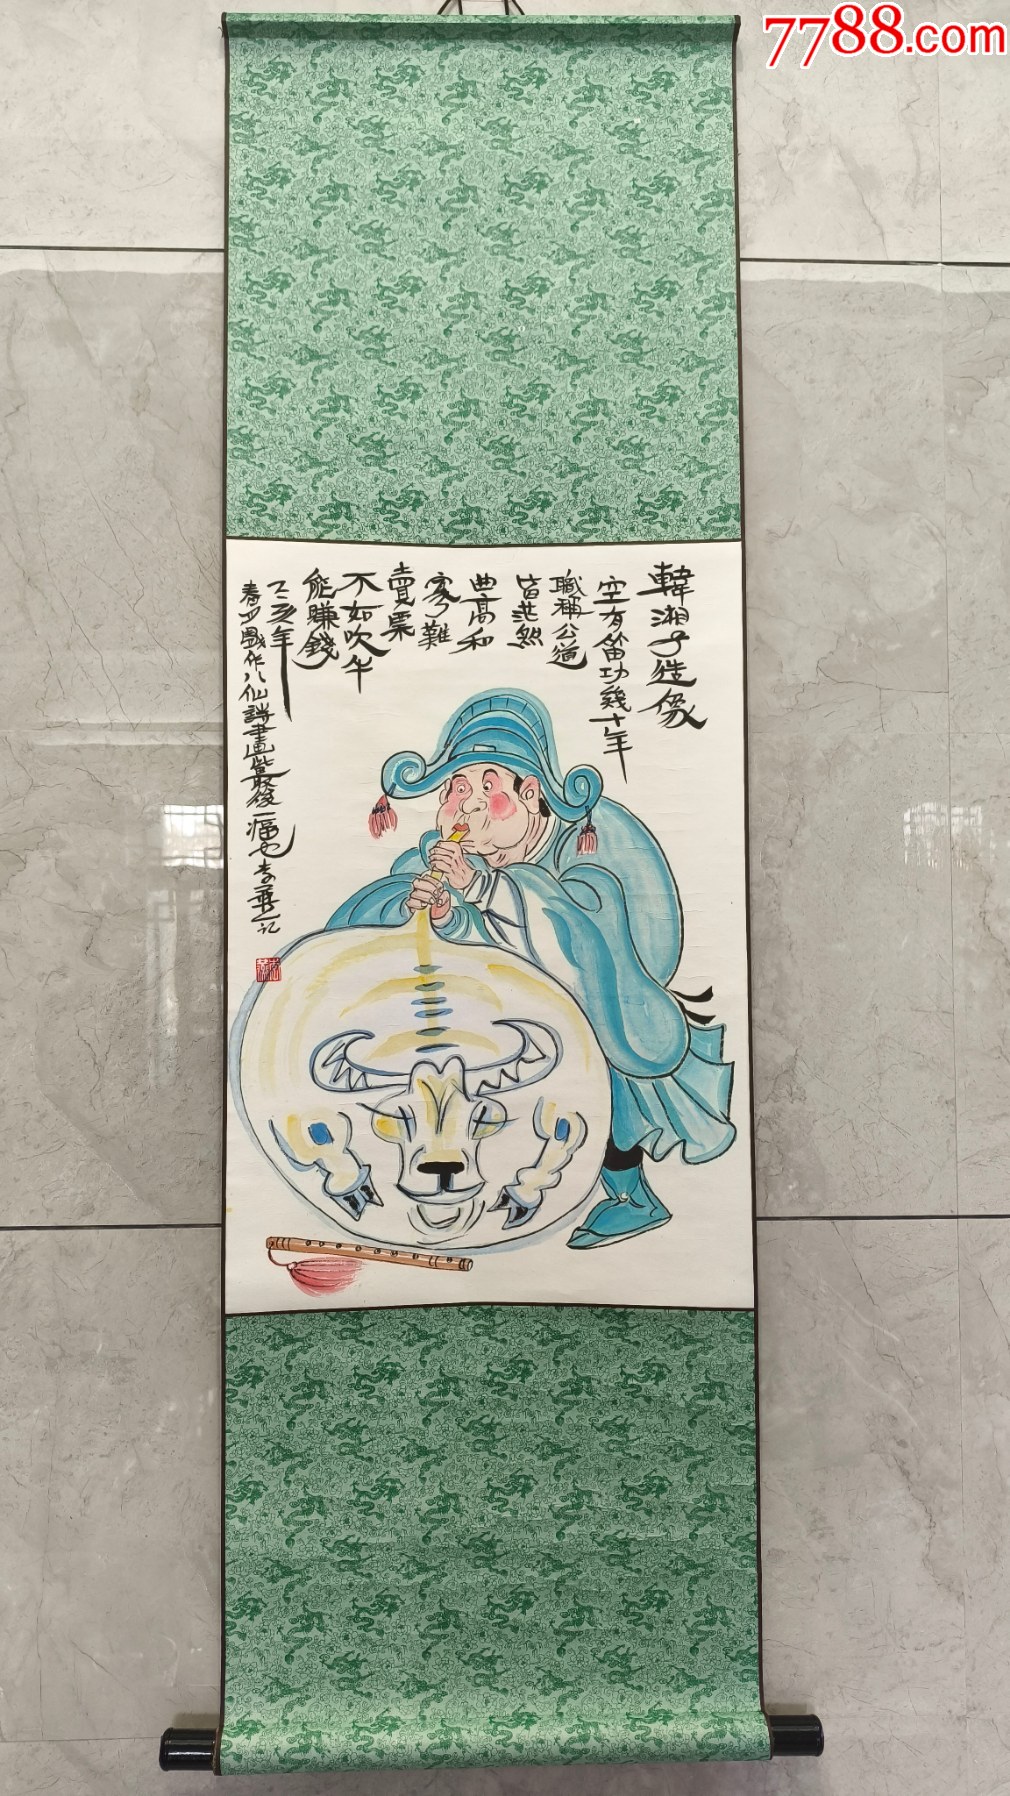 7788.com
韓湘子造像
空有笛功幾十年
職稱公道
皆茫然
曲高和
寡難
賣票
不如吹牛
能賺錢
乙亥年
春月戲作八仙詩畫最後一幅也李燕記